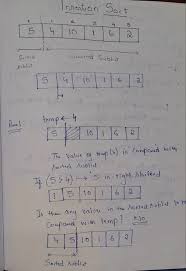 Insertion Sort
5 4 10 1 6 2
Sorted sublist unsorted Sublist
5 4 10 1 6 2
Pass 1: temp ← 4
5 10 1 6 2
The value of temp(4) is compared with
sorted sublist
If (5 > 4) → 5 is right shifted
5 10 1 6 2
Is there any value in the sorted sublist to
compared with temp? NO
4 5 10 1 6 2
Sorted sublist